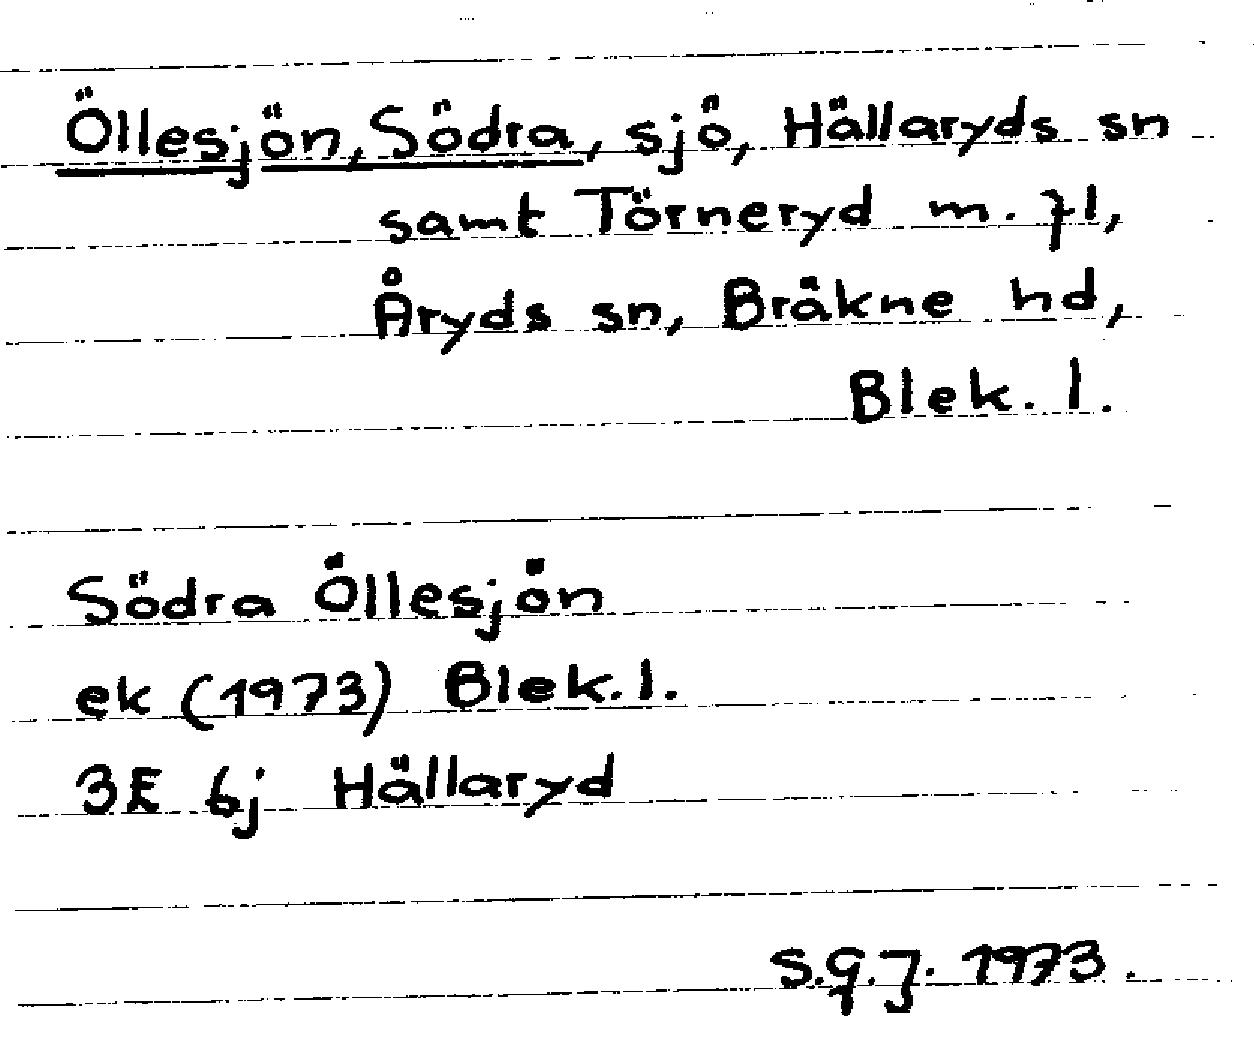 Öllesjön, Södra, sjö, Hällaryds sn
samt Törneryd m. fl,
Åryds sn, Bräkne hd,
Blek. l.
Södra Öllesjön
ek (1973) Blek. l.
3E 6j Hällaryd
S.G.J. 1973.